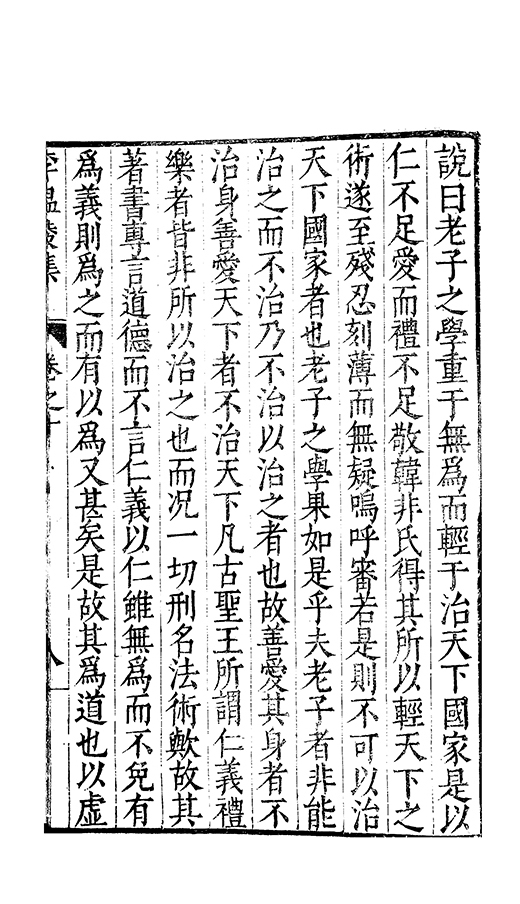 說曰老子之學重于無爲而輕于治天下國家是以
仁不足愛而禮不足敬韓非氏得其所以輕天下之
術遂至殘忍刻薄而無疑嗚呼審若是則不可以治
天下國家者也老子之學果如是乎夫老子者非能
治之而不治乃不治以治之者也故善愛其身者不
治身善愛天下者不治天下凡古聖王所謂仁義禮
樂者皆非所以治之也而况一切刑名法術歟故其
著書專言道德而不言仁義以仁雖無爲而不免有
爲義則爲之而有以爲又甚矣是故其爲道也以虛
李温陵集 卷之十 八